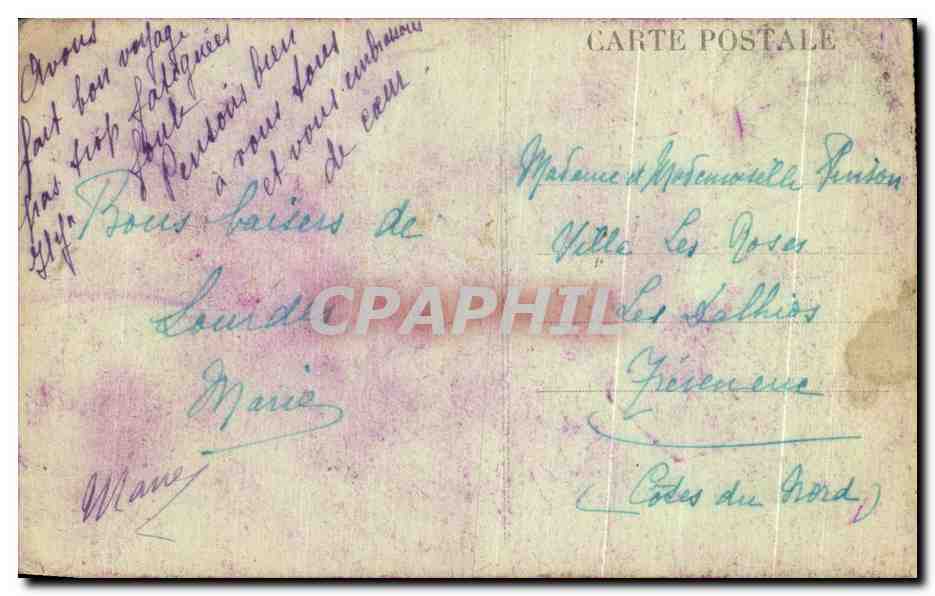 CARTE POSTALE
Avons
fait bon voyage
pas trop fatiguées
Pensons bien
à vous tous
et vous embrassons
de cœur.
Bons baisers de
Lourdes
Marie
Marie
Madame et Mademoiselle Pinson
Villa Les Roses
Les Dalhias
Tréveneuc
(Côtes du Nord)
CPAPHIL